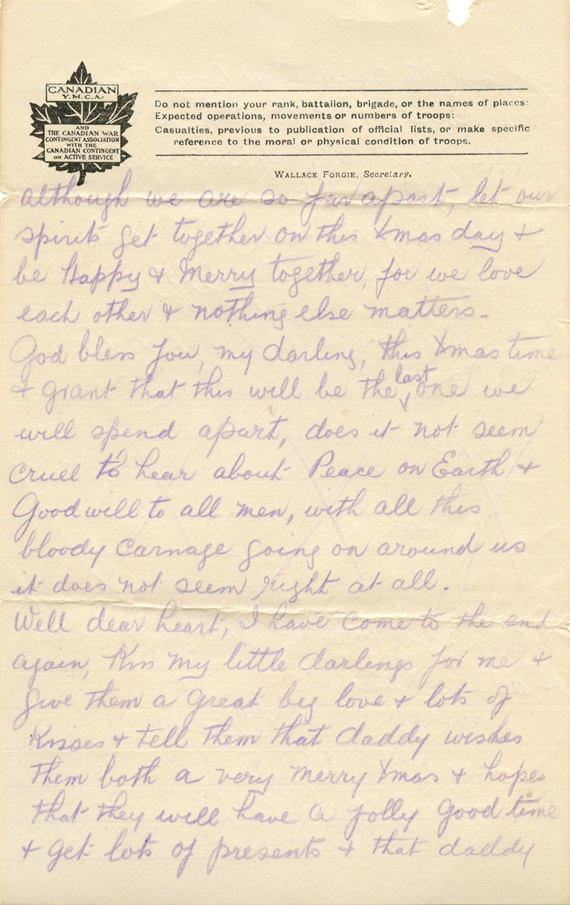 CANADIAN
Y.M.C.A.
AND
THE CANADIAN WAR
CONTINGENT ASSOCIATION
WITH THE
CANADIAN CONTINGENT
ON ACTIVE SERVICE
Do not mention your rank, battalion, brigade, or the names of places:
Expected operations, movements or numbers of troops:
Casualties, previous to publication of official lists, or make specific
reference to the moral or physical condition of troops.
WALLACE FORGIE, Secretary.
although we are so far apart, let our
spirits get together on this Xmas day &
be Happy & Merry together, for we love
each other & nothing else matters.
God bless you, my darling, this Xmas time
& grant that this will be the last one we
will spend apart, does it not seem
cruel to hear about Peace on Earth &
Goodwill to all men, with all this
bloody carnage going on around us
it does not seem right at all.
Well dear heart, I have come to the end
again, Kiss my little darlings for me &
give them a great big love & lots of
Kisses & tell them that daddy wishes
them both a very merry Xmas & hopes
that they will have a jolly good time
& get lots of presents & that daddy